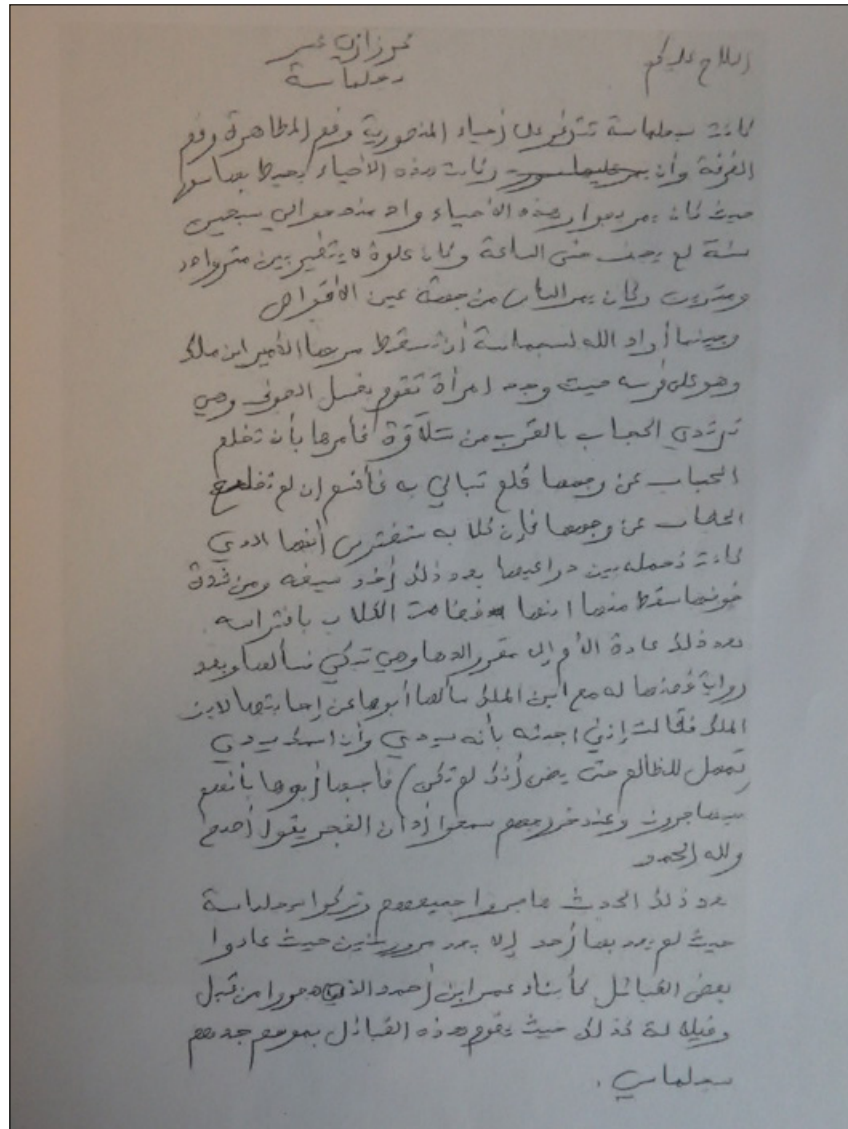 السلام عليكم
سجلماسة
كانت سجلماسة تتوفر على أحياء المنصورية وقع المظاهرة وقع
الغرفة وأن وكانت هذه الأحياء يحيط بها
حيث كان يمر بجوار هذه الأحياء واد منذ حوالي سبعين
سنة لم يجف حتى الساعة وكان علوه يتغير بين متر واحد
ومترين وكان يمر الناس من جهة عين الأقواس
وبينما أراد الله لسجلماسة أن تسقط مر بها الأمير ابن ملك
وهو على فرسه حيث وجد امرأة تقوم بغسل الصوف وهي
ترتدي الحجاب بالقرب من فأمرها بأن تخلع
الحجاب عن وجهها فلم تبالي به فأقسم إن لم تخلع
الحجاب عن وجهها فإن كلابه ستفترس ابنها الذي
كانت تحمله بين ذراعيها بعد ذلك أخذ سيفه ومن شدة
خوفها سقط منها ابنها فقامت الكلاب بافتراسه
بعد ذلك عادة الأم إلى مقر والدها وهي تبكي فسألها وبعد
رواية قصتها له مع ابن الملك سألها أبوها عن إجابتها لابن
الملك فقالت إنني اجبته بأنه سيدي وأن اسمك سيدي
(تمهل للظالم حتى يضن أنك لم تكن) فأجبها أبوها بأنهم
سيهاجرون وعند خروجهم سمعوا أذان الفجر يقول أحدهم
ولله الحمد
بعد ذلك الحدث هاجروا جميعهم وتركوا سجلماسة
حيث لم يعد بها أحد إلا بعد مرور سنين حيث عادوا
بعض القبائل كأبناء عمر ابن أحمد من قبل
كذلك حيث يقوم هذه القبائل بموسم جدهم
سجلماسي .